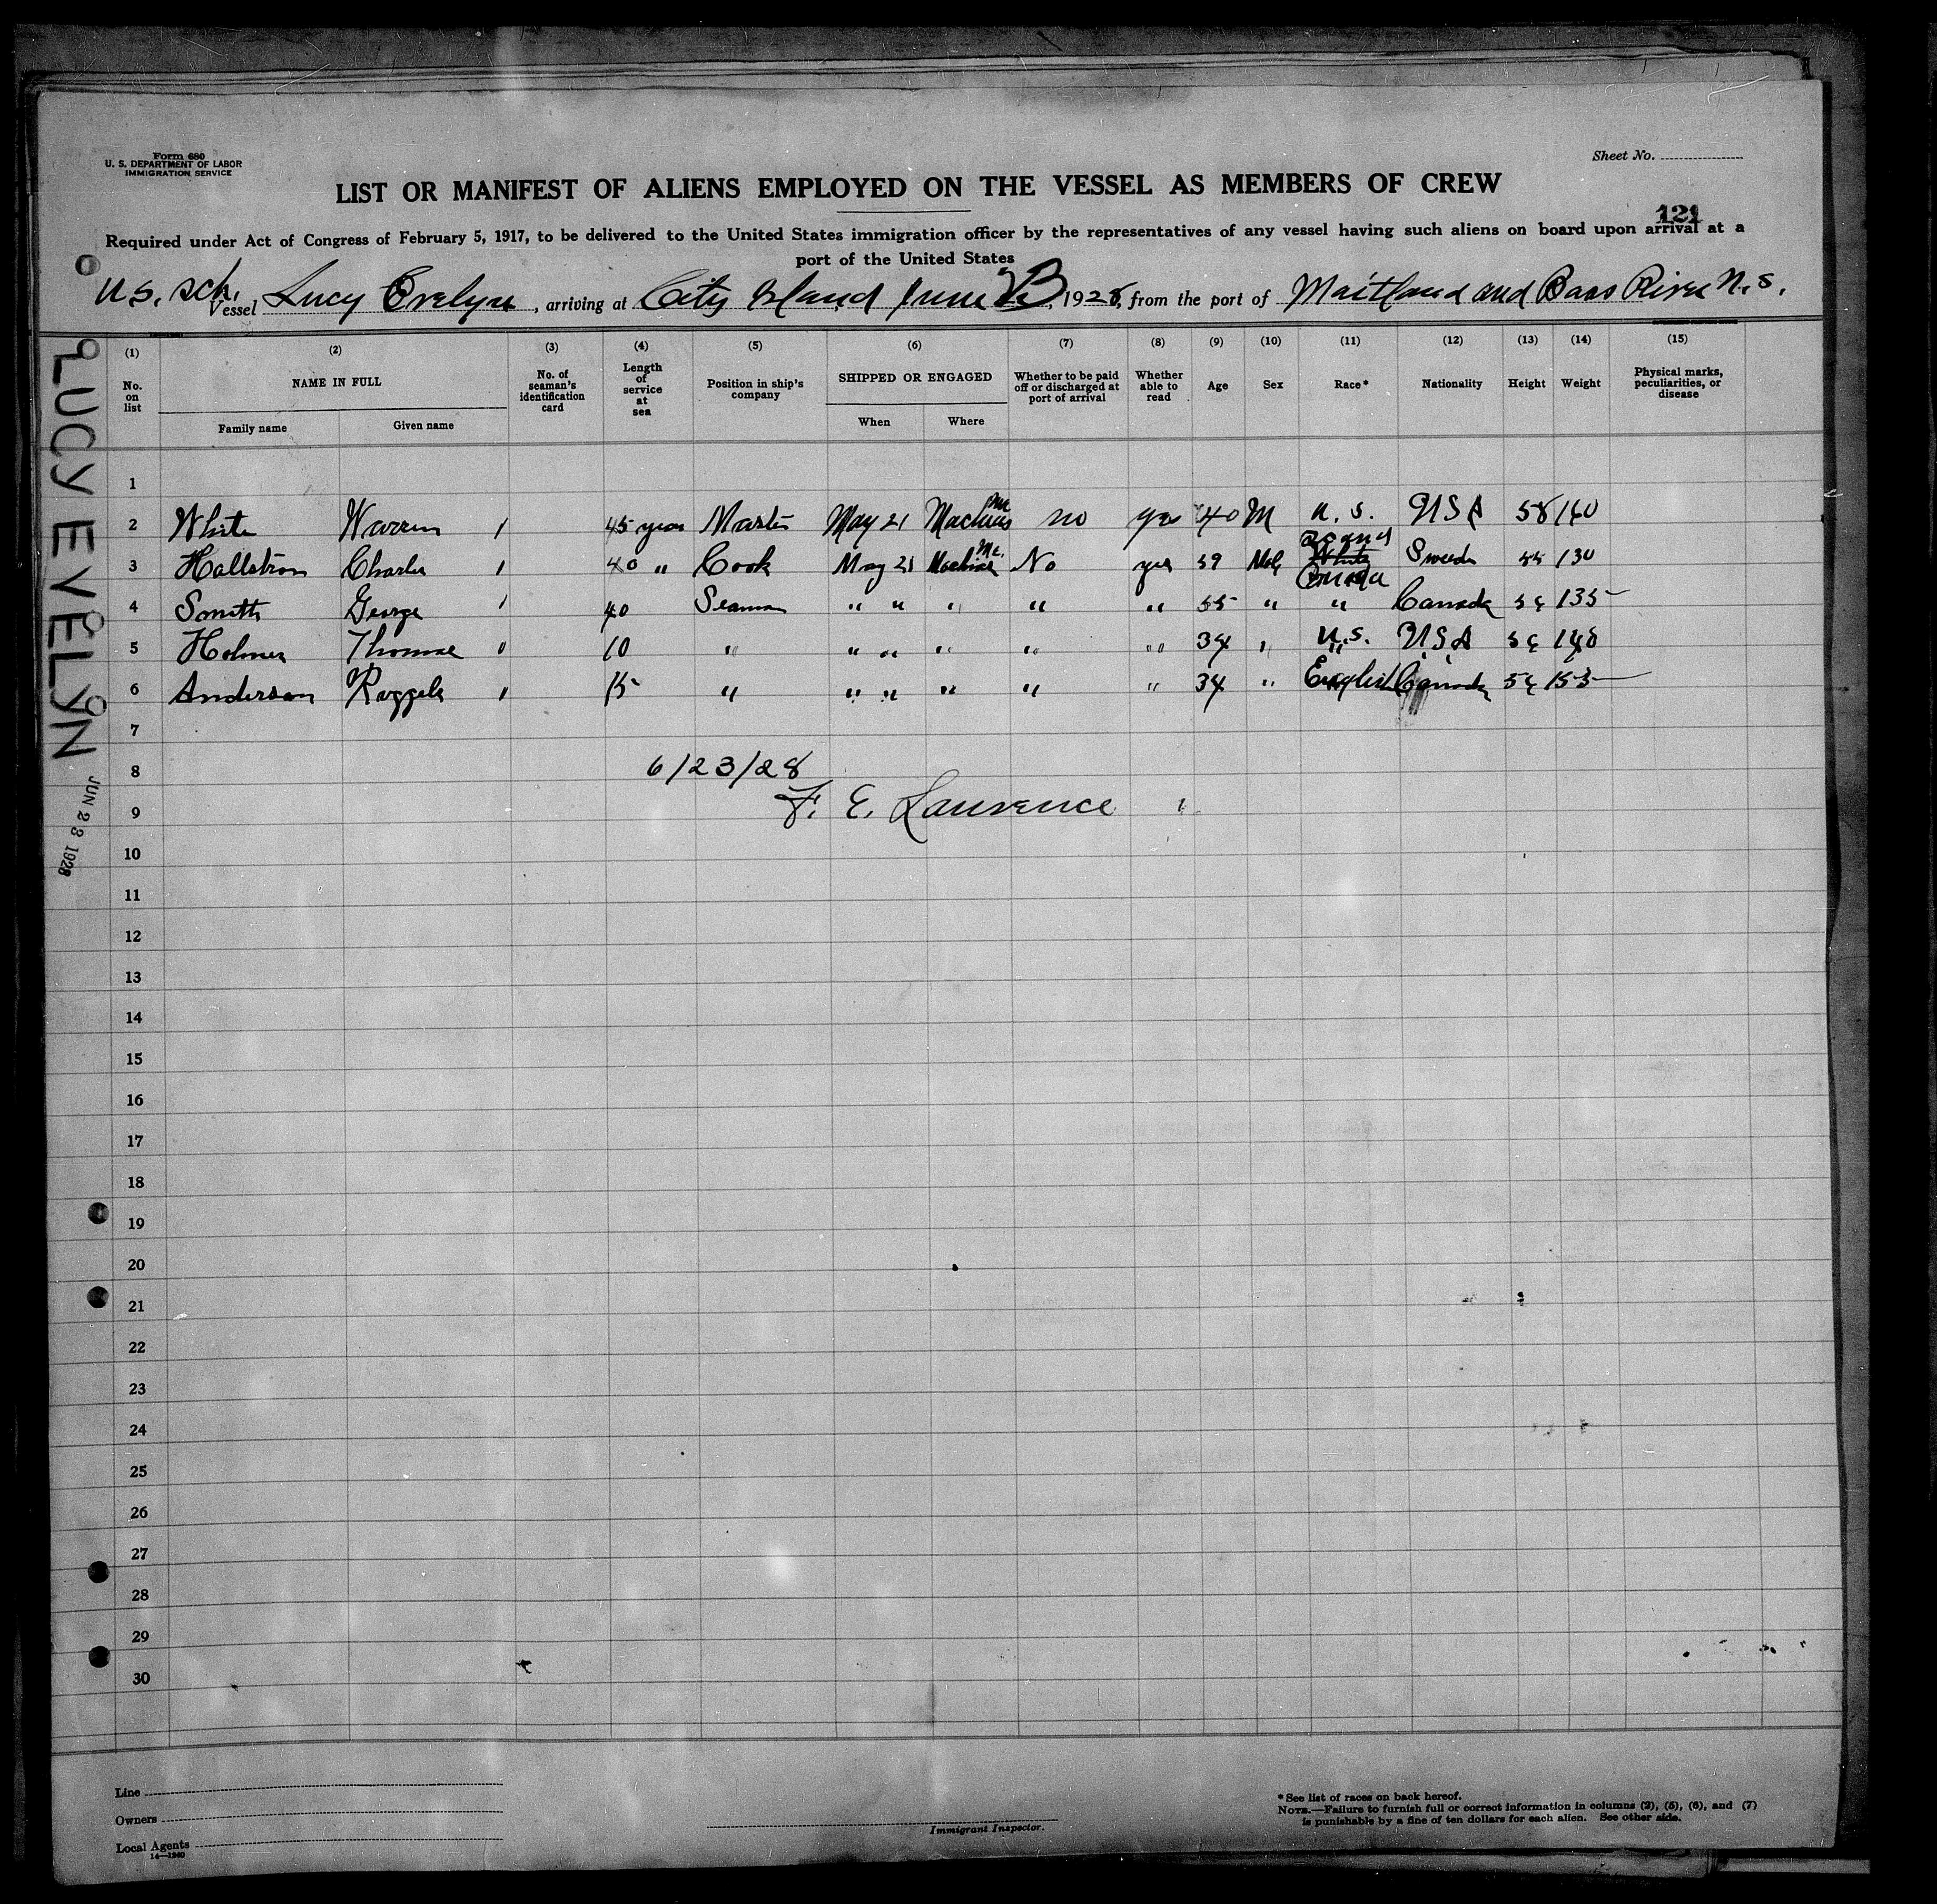 Form 680
U. S. DEPARTMENT OF LABOR
IMMIGRATION SERVICE
Sheet No.
LIST OR MANIFEST OF ALIENS EMPLOYED ON THE VESSEL AS MEMBERS OF CREW
121
Required under Act of Congress of February 5, 1917, to be delivered to the United States immigration officer by the representatives of any vessel having such aliens on board upon arrival at a
port of the United States
U.S. Sch. Vessel Lucy Evelyn, arriving at City Island June 23, 1928, from the port of Maitland and Bass River N.S.
LUCY EVELYN
JUN 23 1928
(1) (2) (3) (4) (5) (6) (7) (8) (9) (10) (11) (12) (13) (14) (15)
No. on list NAME IN FULL No. of seaman's identification card Length of service at sea Position in ship's company SHIPPED OR ENGAGED Whether to be paid off or discharged at port of arrival Whether able to read Age Sex Race* Nationality Height Weight Physical marks, peculiarities, or disease
Family name Given name When Where
1
2 White Warren 45 years Master May 21 Machias Me no yes 40 M U.S. USA 58 160
3 Hallstrom Charles 40 " Cook May 21 Machias Me. No yes 59 White Sweden 130
4 Smith George 40 Seaman " " " " " 55 " " Canada 135
5 Holmes Thomas 10 " " " " " " 34 " U.S. USA 148
6 Anderson 15 " " " " " " 34 " English Canada 153
7
8 6/23/28
9 F. E. Lawrence
10
11
12
13
14
15
16
17
18
19
20
21
22
23
24
25
26
27
28
29
30
Line
Owners
Local Agents
14—1240
Immigrant Inspector.
* See list of races on back hereof.
NOTE.—Failure to furnish full or correct information in columns (2), (5), (6), and (7)
is punishable by a fine of ten dollars for each alien. See other side.